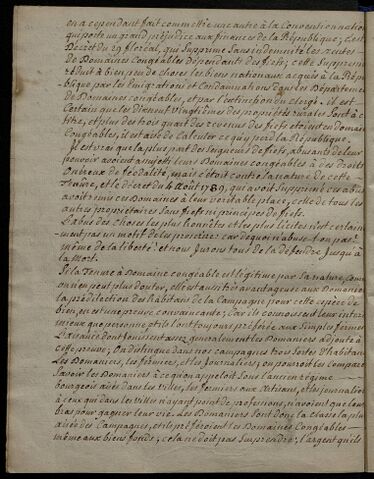 en a cependant fait commettre une autre à la Convention nation
qui porte un grand préjudice aux finances de la République; c'est
Décret du 29 floréal, qui supprime sans indemnité les rentes
de Domaines Congéables Dépendant des fiefs; cette suppression
réduit à bien peu de choses les biens nationaux acquis à la Répu
blique par les Emigrations et Condamnations dans les Départemen
de Domaines congéables, et par l'extinction du clergé. il est
Certain que les dixneuf vingtièmes des propriétés rurales sont à ce
titre, et plus des trois quart des revenus des fiefs étoient en domain
Congéables, il est aisé de calculer ce qui perd la République.
Il est vrai que la plus part des seigneurs de fiefs, abusant de leur
pouvoir avoient assujetti leurs Domaines congéables à des droits
Onéreux de féodalité, mais c'étoit contre la nature de cette
tenüre, et le décret du 4 Août 1789, qui avoit supprimé ces abus
avoit remis ces Domaines à leur véritable place, celle de tous les
autres propriétaires sans fiefs ni principes de fiefs.
L'abus des choses les plus honnêtes et les plus licites n'est certaine
ment pas un motif de les proscrire; car de quoi n'abuse-t-on pas?
même de la liberté. et nous jurons tous de la défendre jusqu'à
la Mort.
Si la Tenure à Domaine congéable est légitime par sa nature, com
on n'en peut plus douter, elle est aussi très avantageuse aux Domanie
la prédilection des habitans de la Campagne pour cette espèce de
bien, en est une preuve convaincante; Car ils connoissent leur inter
mieux que personne et ils l'ont toujours préférée aux simples fermes
L'aisance dont jouissent assez généralement les Domaniers ajoute à
cette preuve; On distingue dans nos campagnes trois sortes d'habitan
Les Domaniers, les fermiers, et les Journaliers; on pouroit les compare
Savoir les Domaniers à ce qu'on appeloit sous l'ancien régime
bourgeois aisés dans les villes, les fermiers aux Artisans, et les journaliers
à ceux qui dans les villes n'ayant point de professions, n'avoient que leurs
bras pour gagner leur vie. Les Domaniers sont donc la classe la plus
aisée des Campagnes, et ils préféroient les Domaines Congéables
même aux biens fonds; cela ne doit pas surprendre; l'argent qu'ils